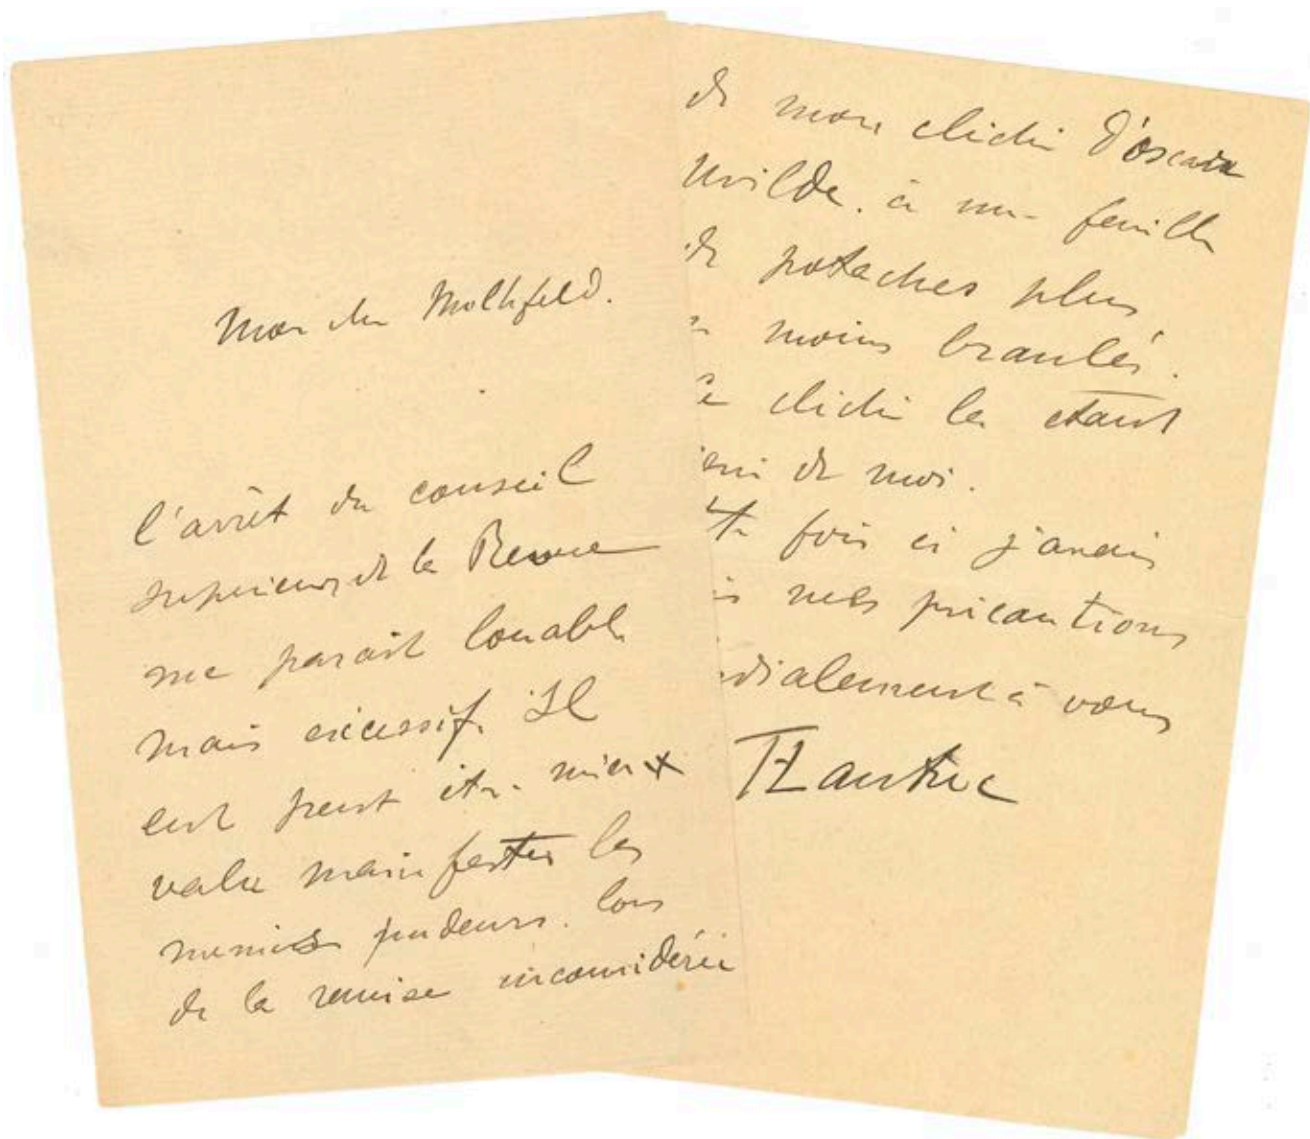 Mon cher Mulhfeld.
l'arrêt du conseil
superieur de la Revue
me parait louable
mais excessif. Il
eut peut etre mieux
valu manifester les
memes pudeurs. lors
de la remise inconsidérée
de mon cliché d'oscar
Wilde. à une feuille
de potaches plus
moins branlés.
cliché la etant
de moi.
fois ci j'avais
mes précautions
dialement à vous
TLautrec